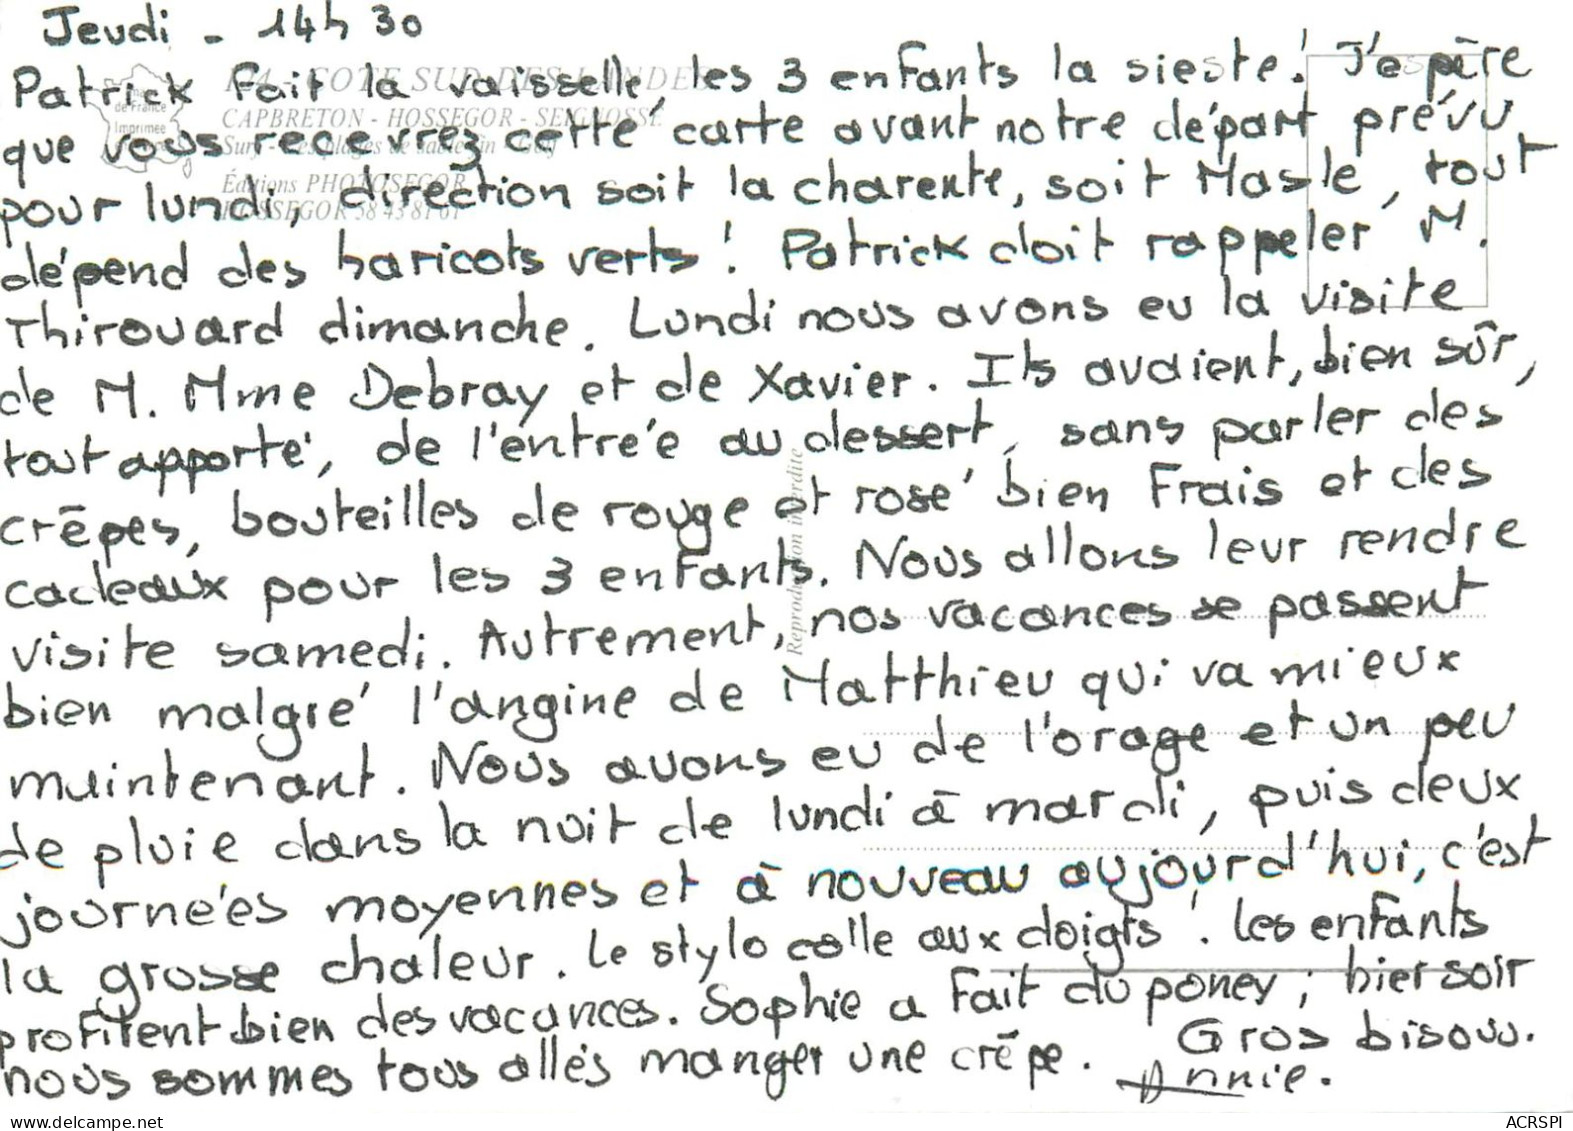 Jeudi - 14h30
Patrick fait la vaisselle, les 3 enfants la sieste! J'espère
que vous recevrez cette carte avant notre départ prévu
pour lundi, direction soit la charente, soit Masle, tout
dépend des haricots verts! Patrick doit rappeler M.
Thirouard dimanche. Lundi nous avons eu la visite
de M. Mme Debray et de Xavier. Ils avaient, bien sûr,
tout apporté, de l'entrée au dessert, sans parler des
crêpes, bouteilles de rouge et rosé bien frais et des
cadeaux pour les 3 enfants. Nous allons leur rendre
visite samedi. Autrement, nos vacances se passent
bien malgré l'angine de Matthieu qui va mieux
maintenant. Nous avons eu de l'orage et un peu
de pluie dans la nuit de lundi à mardi, puis deux
journées moyennes et à nouveau aujourd'hui, c'est
la grosse chaleur. Le stylo colle aux doigts! Les enfants
profitent bien des vacances. Sophie a fait du poney; hier soir
nous sommes tous allés manger une crêpe. Gros bisous.
Annie.
COTE SUD DES LANDES
CAPBRETON - HOSSEGOR - SEIGNOSSE
Surf - Les plages de sable fin - Golf
Éditions PHOTOSEGOR
HOSSEGOR 58 43 81 61
de France
Imprimée
Reproduction interdite
www.delcampe.net
ACRSPI